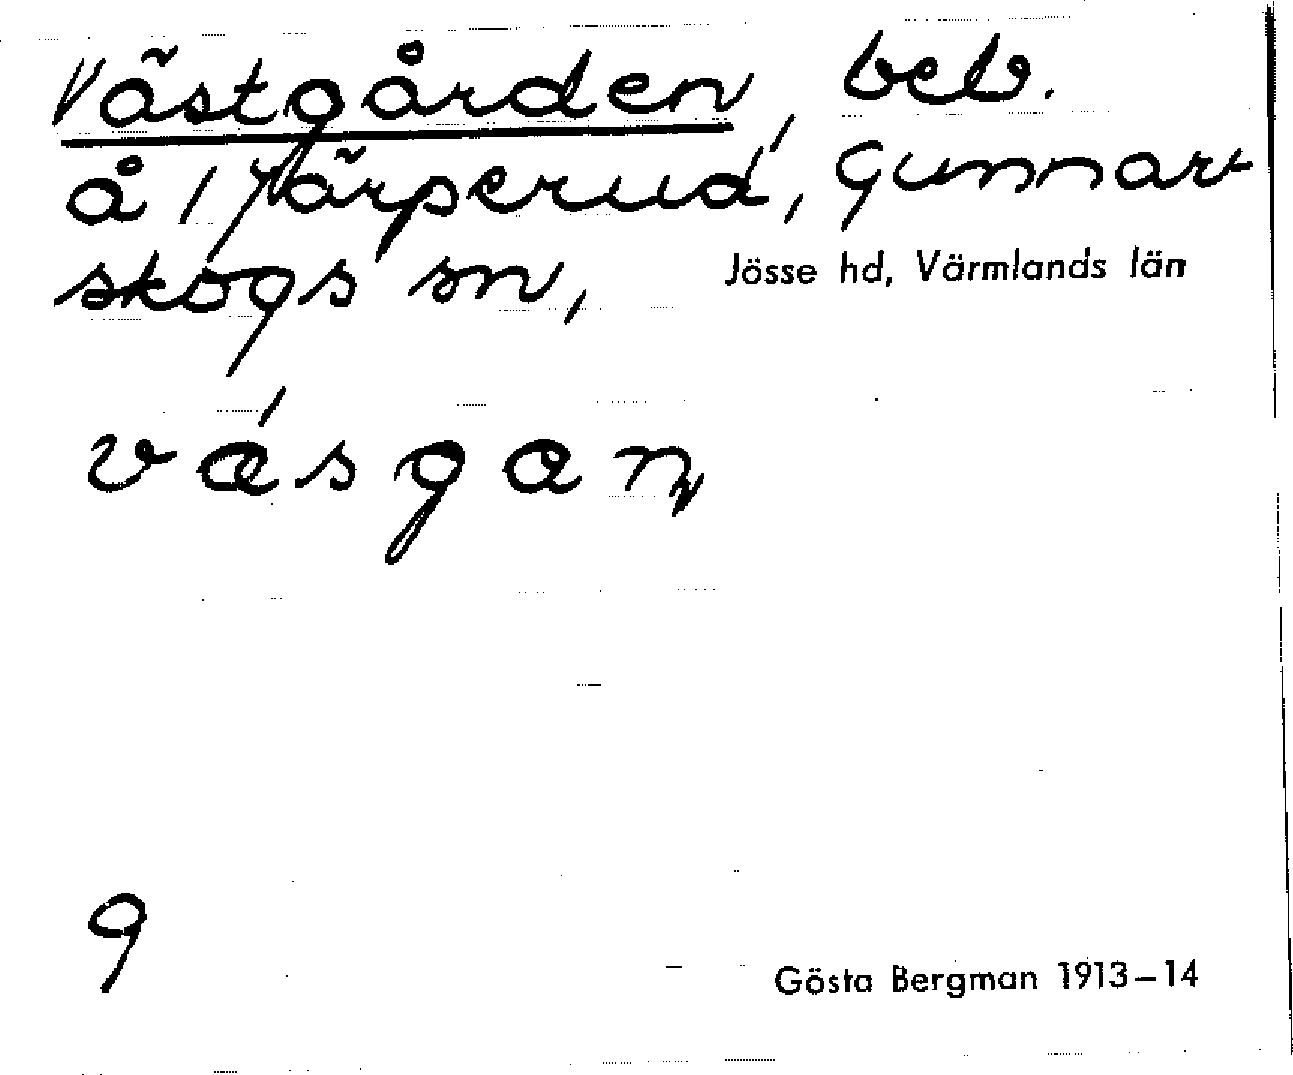 Västgården, beb.
å 1/7 Järperud, Gunnar-
skogs sn, Jösse hd, Värmlands län
väsgan
9
Gösta Bergman 1913–14